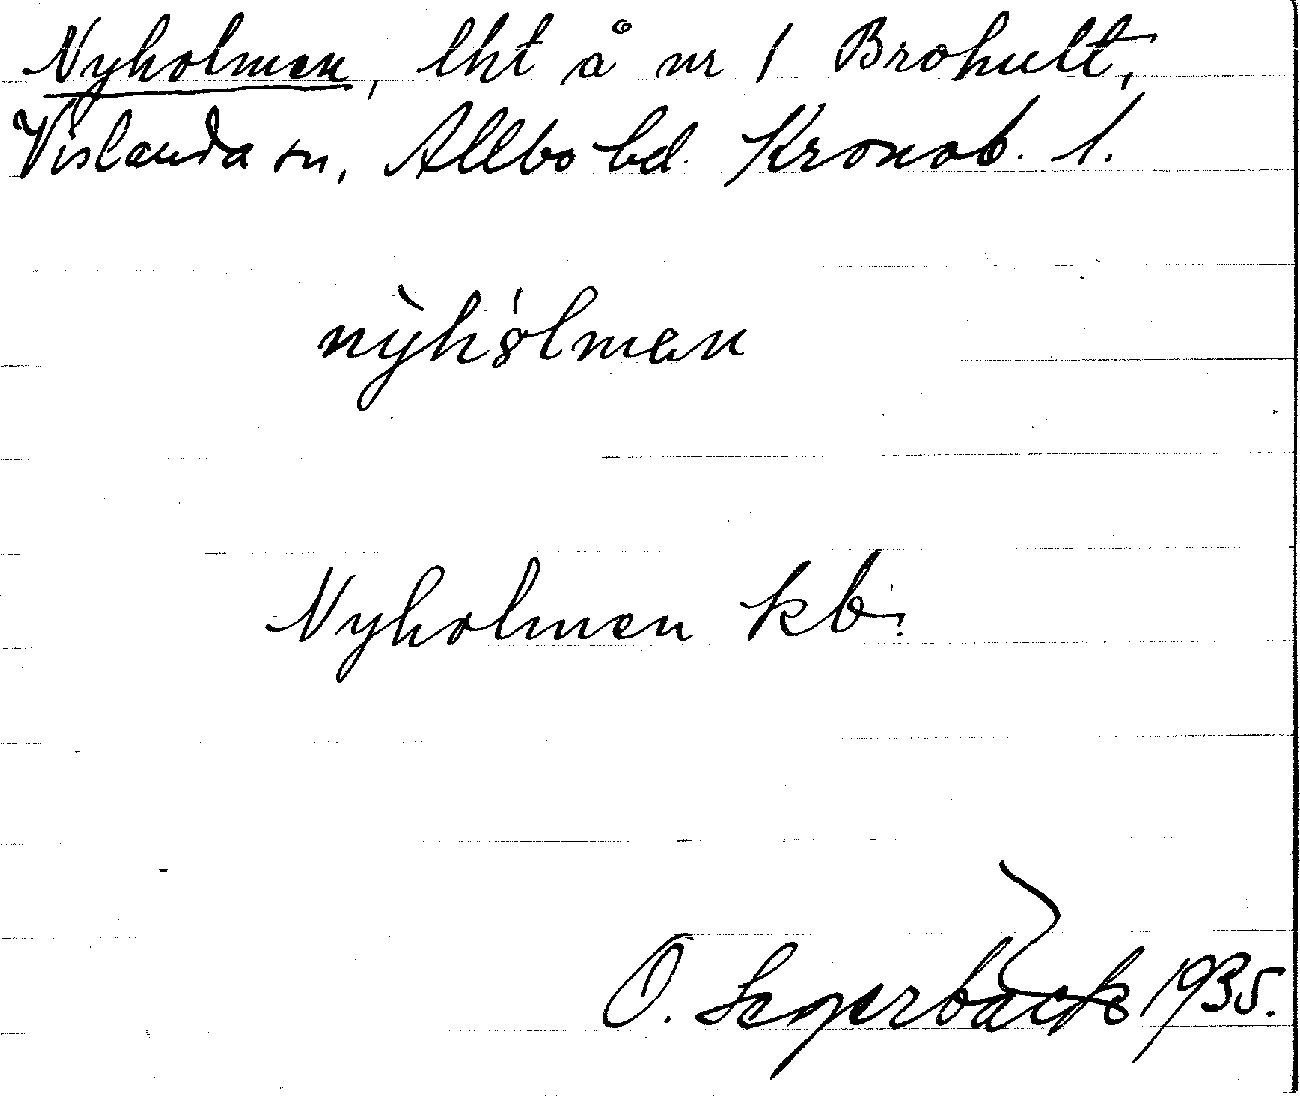 Nyholmen, lht å nr 1 Brohult,
Vislanda sn, Allbo hd. Kronob. l.
nỳhólmen
Nyholmen kb.
O. Segerbäck 1935.